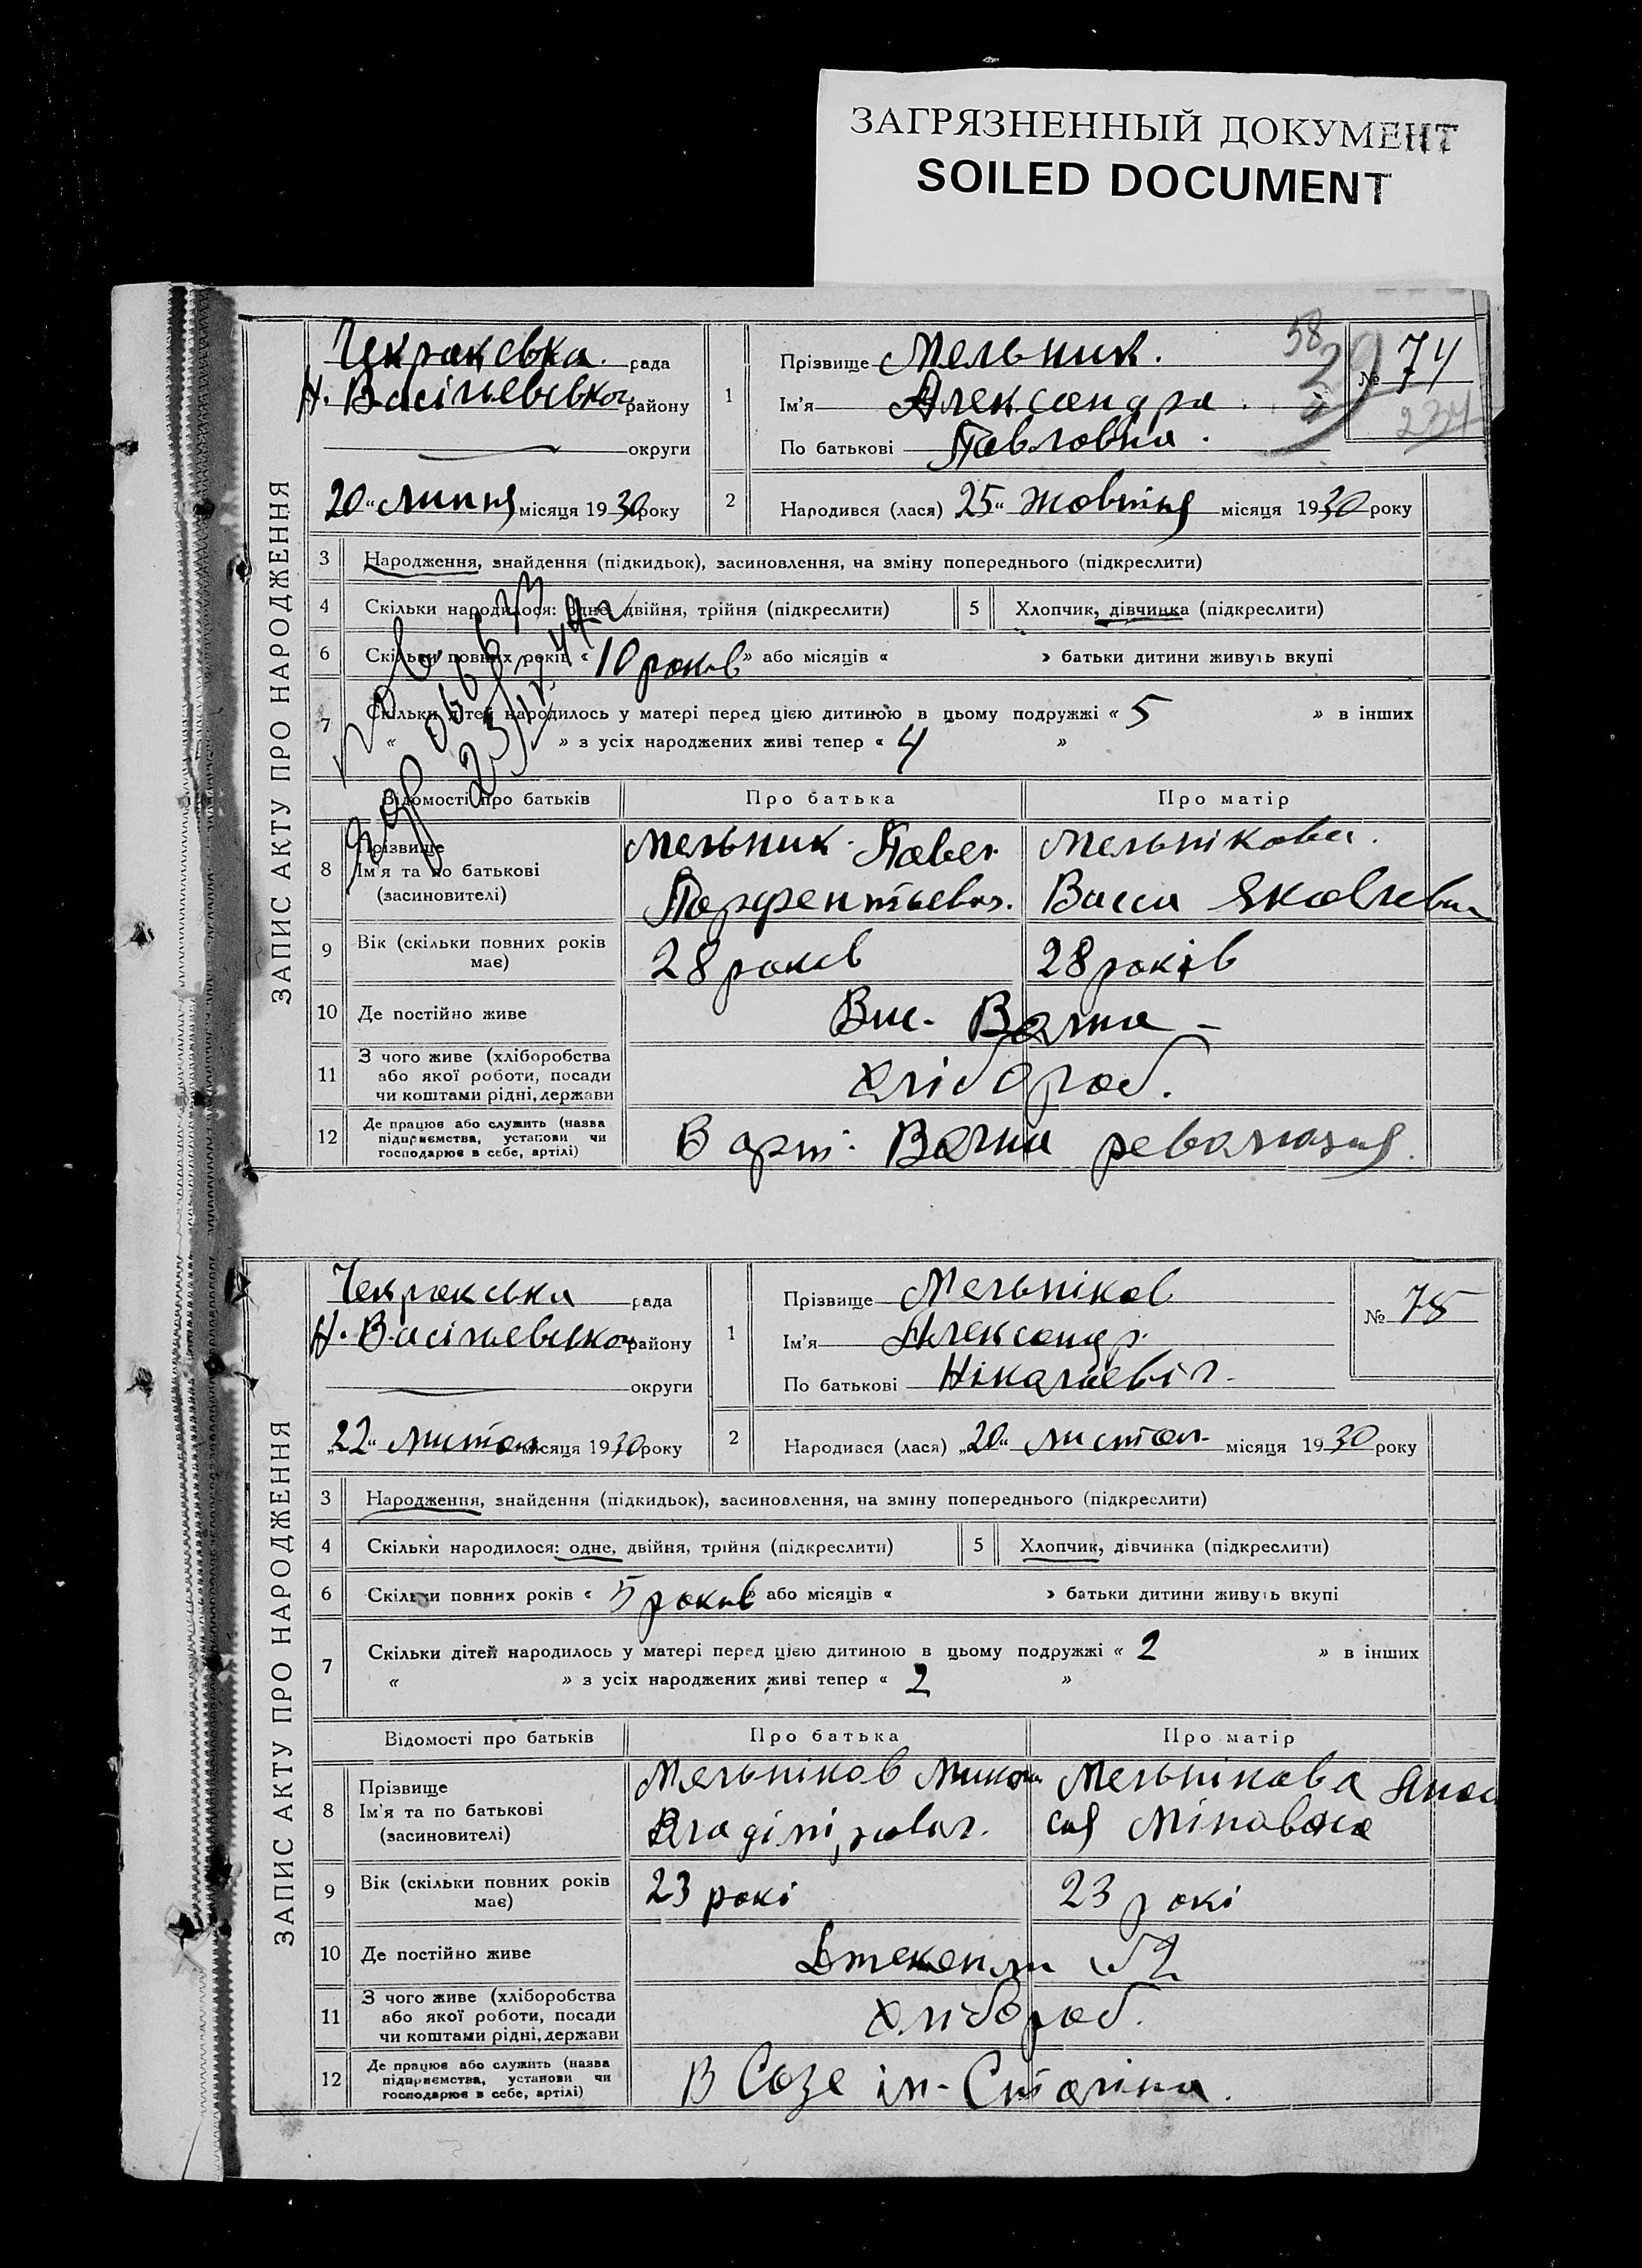 ЗАГРЯЗНЕННЫЙ ДОКУМЕНТ
SOILED DOCUMENT
ЗАПИС АКТУ ПРО НАРОДЖЕННЯ
Чекракська рада
Н. Васільевськог району
округи
20 "липня місяця 1930 року
58
1 Прізвище Мельник.
Ім'я Александра.
По батькові Павловна.
№ 74
234
2 Народився (лася) 25" жовтня місяця 1930 року
3 Народження, знайдення (підкидьок), засиновлення, на зміну попереднього (підкреслити)
4 Скільки народилося: одне, двійня, трійня (підкреслити) 5 Хлопчик, дівчинка (підкреслити)
6 Скільки повних років « 10 років » або місяців « » батьки дитини живуть вкупі
7 Скільки дітей народилось у матері перед цією дитиною в цьому подружжі « 5 » в інших
« » з усіх народжених живі тепер « 4 »
Відомості про батьків Про батька Про матір
8 Прізвище
Ім'я та по батькові
(засиновителі)
Мельник Павел
Парфентьевич.
Мельнікова.
Васса Яковлевна
9 Вік (скільки повних років має) 28 років 28 років
10 Де постійно живе Вис. Волна
11 З чого живе (хліборобства
або якої роботи, посади
чи коштами рідні, держави
хлібороб.
12 Де працює або служить (назва
підприємства, установи чи
господарює в себе, артілі)
В арт. Волна революция.
ЗАПИС АКТУ ПРО НАРОДЖЕННЯ
Чекракська рада
Н. Васільевськог району
округи
„22" листоп місяця 1930 року
1 Прізвище Мельніков
Ім'я Александр.
По батькові Ніколаевіч.
№ 75
2 Народився (лася) „20" листоп місяця 1930 року
3 Народження, знайдення (підкидьок), засиновлення, на зміну попереднього (підкреслити)
4 Скільки народилося: одне, двійня, трійня (підкреслити) 5 Хлопчик, дівчинка (підкреслити)
6 Скільки повних років « 5 років » або місяців « » батьки дитини живуть вкупі
7 Скільки дітей народилось у матері перед цією дитиною в цьому подружжі « 2 » в інших
« » з усіх народжених живі тепер « 2 »
Відомості про батьків Про батька Про матір
8 Прізвище
Ім'я та по батькові
(засиновителі)
Мельніков Микол
Мельнікова Анас
сія Міновна
9 Вік (скільки повних років має) 23 рокі 23 рокі
10 Де постійно живе №2
11 З чого живе (хліборобства
або якої роботи, посади
чи коштами рідні, держави
хлібороб.
12 Де працює або служить (назва
підприємства, установи чи
господарює в себе, артілі)
В Созе ім- Сталіна.